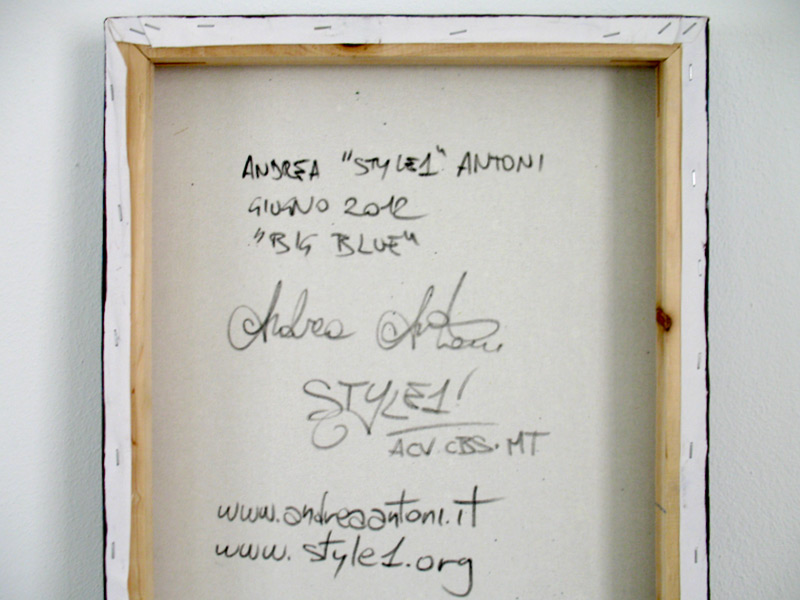 ANDREA "STYLE1" ANTONI
GIUGNO 2012
"BIG BLUE"
Andrea Antoni
STYLE1!
ACV.CBS.MT
www.andreaantoni.it
www.style1.org